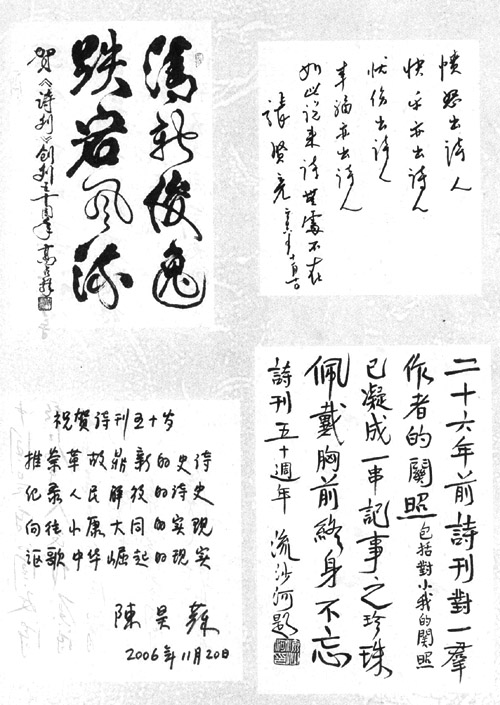 清新俊逸
跌宕风流
贺《诗刊》创刊五十周年 高占祥
愤怒出诗人
快乐亦出诗人
忧伤出诗人
幸福亦出诗人
如此说来诗無處不在
張賢亮
祝贺诗刊五十岁
推崇革故鼎新的史诗
纪录人民解放的诗史
向往小康大同的实现
讴歌中华崛起的现实
陳昊蘇
2006年11月20日
二十六年前詩刊對一羣
作者的關照包括對小我的関照
已凝成一串記事之珍珠
佩戴胸前終身不忘
詩刊五十週年 流沙河题